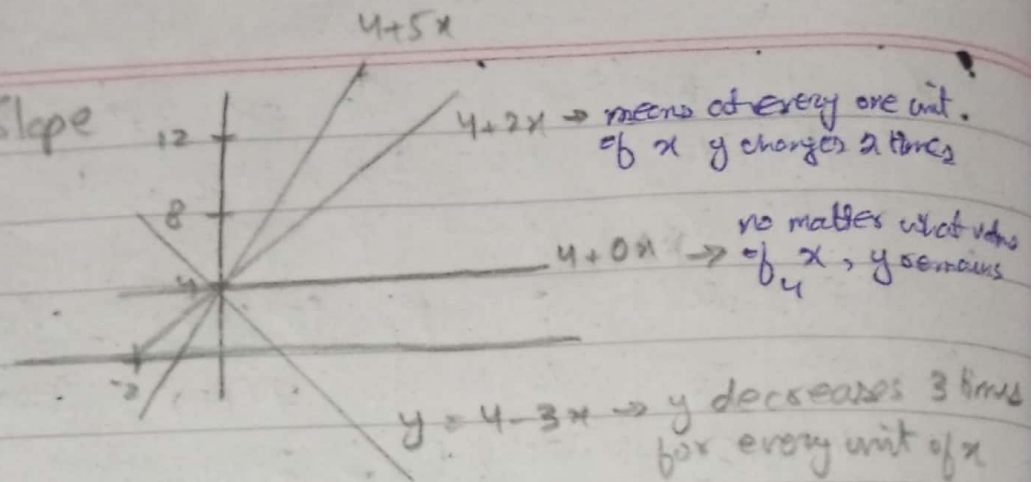 4+5x
Slope
12
4+2x → means at every one unit.
of x y changes 2 times
8
no matter what value
4+0x → of x, y remains
4
4
-2
y = 4-3x → y decreases 3 times
for every unit of x